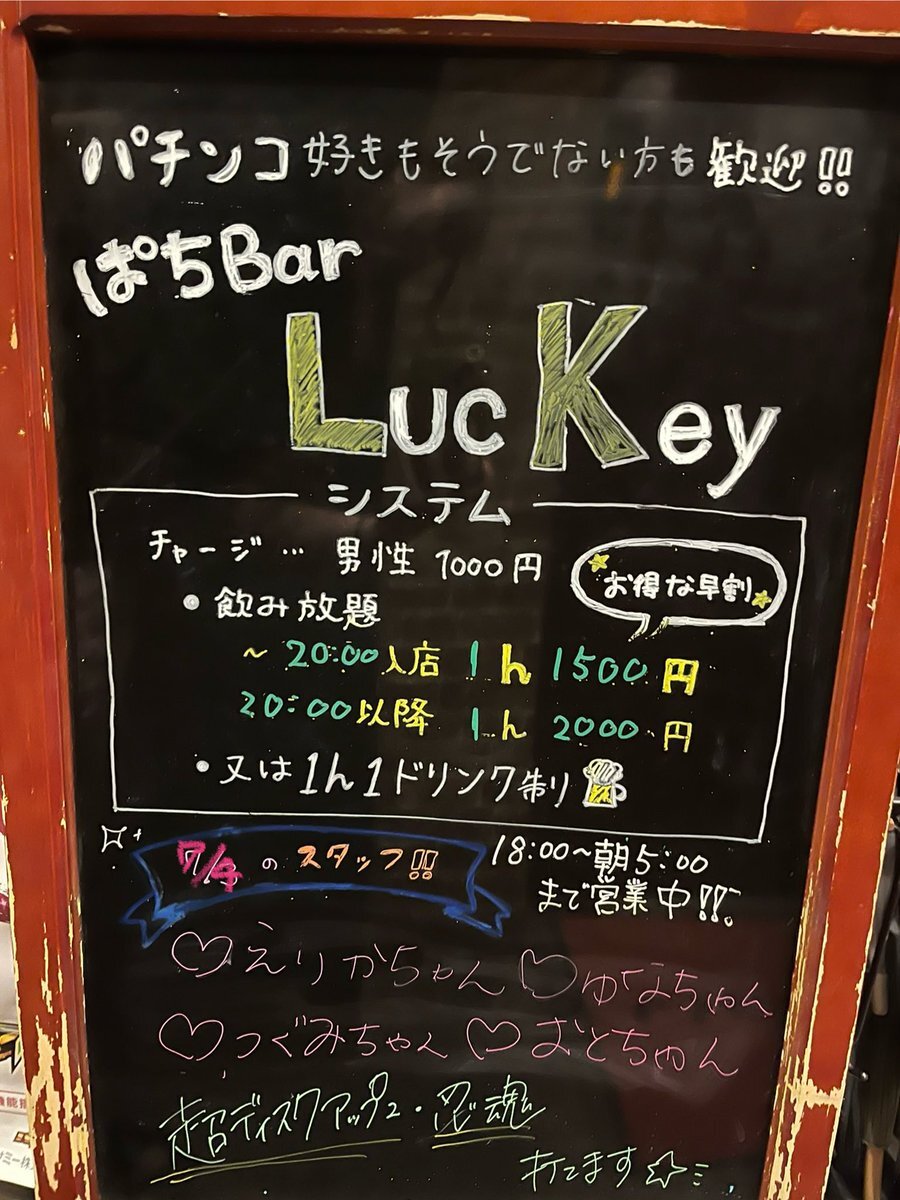 パチンコ好きもそうでない方も歓迎!!
ぱちBar
LucKey
システム
チャージ… 男性 1000円
お得な早割
・飲み放題
~ 20:00入店 1h 1500円
20:00以降 1h 2000円
・又は1h1ドリンク制
7/4のスタッフ!!
18:00~朝5:00
まで営業中!!
♡えりかちゃん ♡ゆなちゃん
♡つぐみちゃん ♡おとちゃん
超ディスクアップ2・忍魂
打てます☆